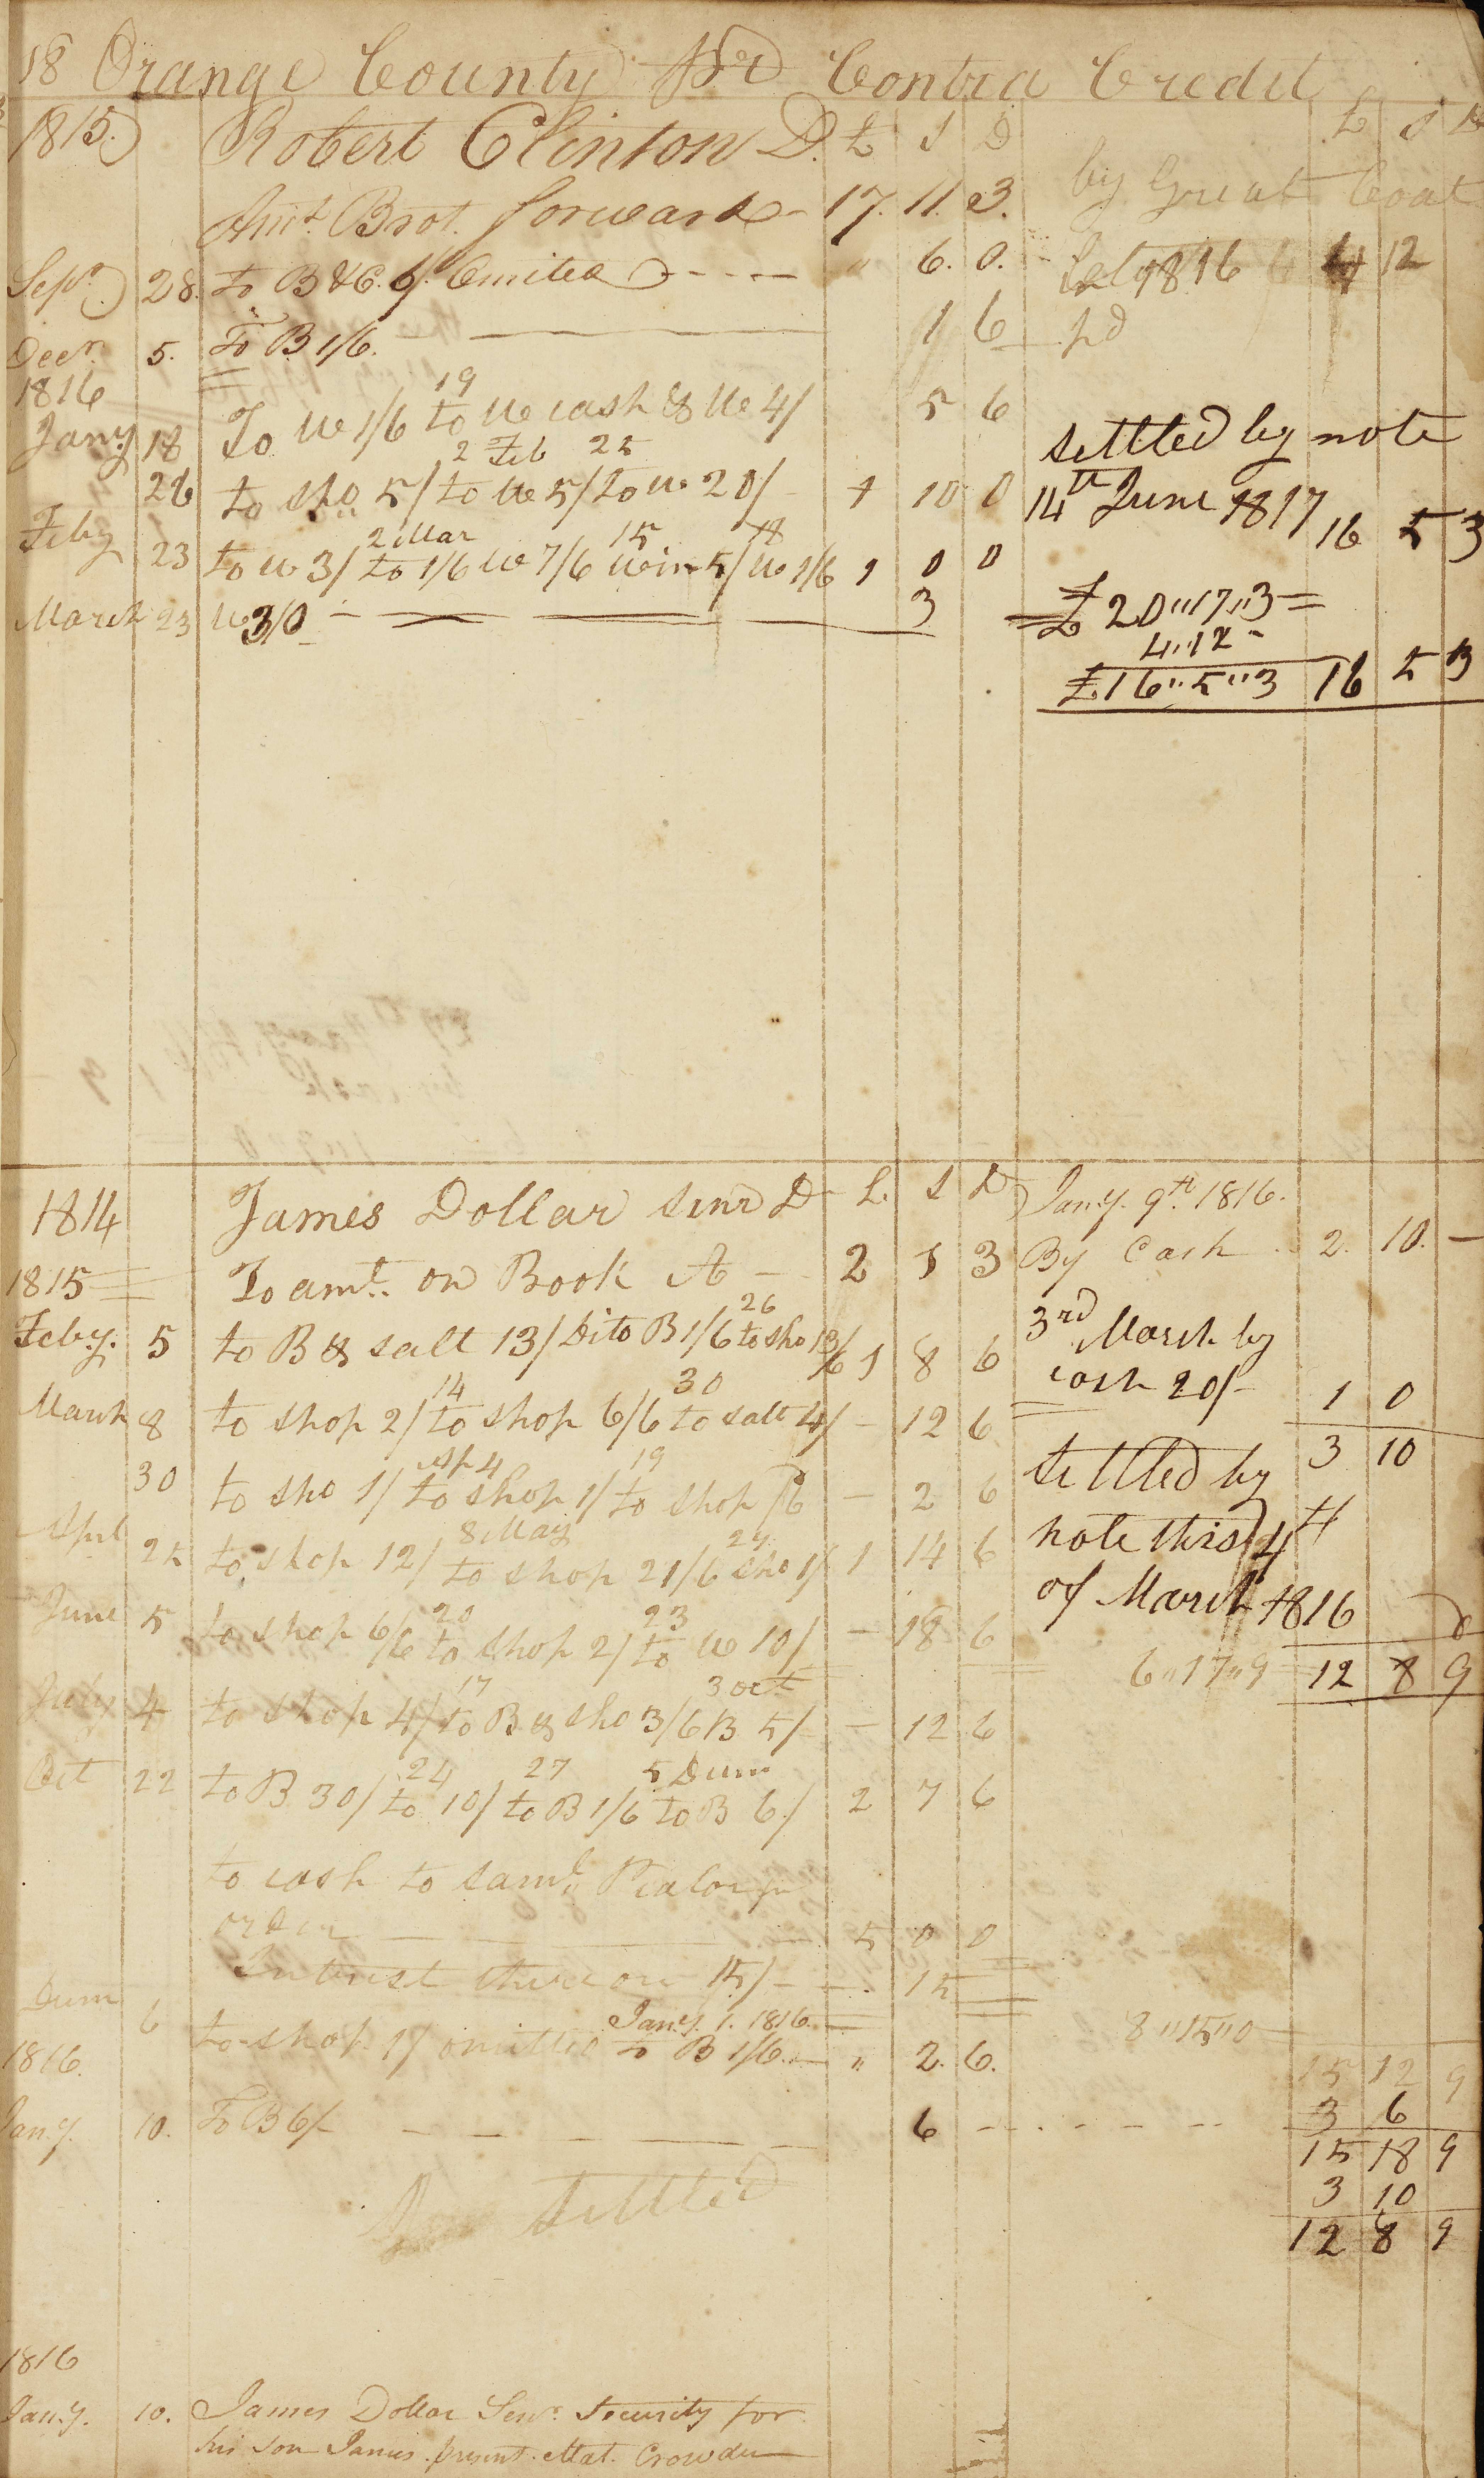 18 Orange County Dr Contra Credit
1815. Robert Clinton D. £ S D £ S D
Amt. Brot. forward 17. 11. 3. by Great Coat
Sepr. 28. to B &C. 6/. Omited " 6. 0. 1816 4 12
Decr. 5. To B 1/6. 1 6 pd
1816
19
Jany 18 To we 1/6 to we cash & we 4/ 5 6 settled by note
2 Feb 25
26 to sho 5/ to we 5/ to we 20/ 1 10 0 14th June 1817 16 5 3
2 Mar 15 18
Feby 23 to we 3/ to 1/6 we 7/6 we in 5/ we 1/6 1 0 0
March 23 we 3/0 3 £ 20"17"3
4"12 -
£16"5"3 16 5 3
1814 James Dollar senr D L. S D Jany. 9th. 1816.
1815 To amt. on Book A 2 1 3 By Cash 2. 10. -
26
Feby. 5 to B & salt 13/ Dito B 1/6 to sho 13/6 1 8 6 3rd March by
cash 20/- 1 0
14 30
March 8 to shop 2/ to shop 6/6 to salt 4/ - 12 6 3 10
Ap 4 19
30 to sho 1/ to shop 1/ to shop /6 - 2 6 settled by
8 May 24
Aprl 25 to shop 12/ to shop 21/6 sho 1/ 1 14 6 note this 4th
20 23
June 5 to shop 6/6 to shop 2/ to we 10/ - 18 6 of March 1816
6"17"9 12 8 9
17 3 oct
July 4 to shop 4/ to B & sho 3/6 B 5/ - 12 6
24 27 5 Decm
Oct 22 to B 30/ to 10/ to B 1/6 to B 6/ 2 7 6
to cash to saml.
order 5 0 0
Intrest thereon 15/- 15
Jany. 1. 1816.
Decm 6 to shop 1/ omitted to B 1/6. " 2. 6. 8"15"0
1816. 15 12 9
Jany. 10. To B 6/- 6 3 6
15 18 9
settled 3 10
12 8 9
1816
Jany. 10. James Dollar Senr. security for
his son James. present. Mat. Crowder